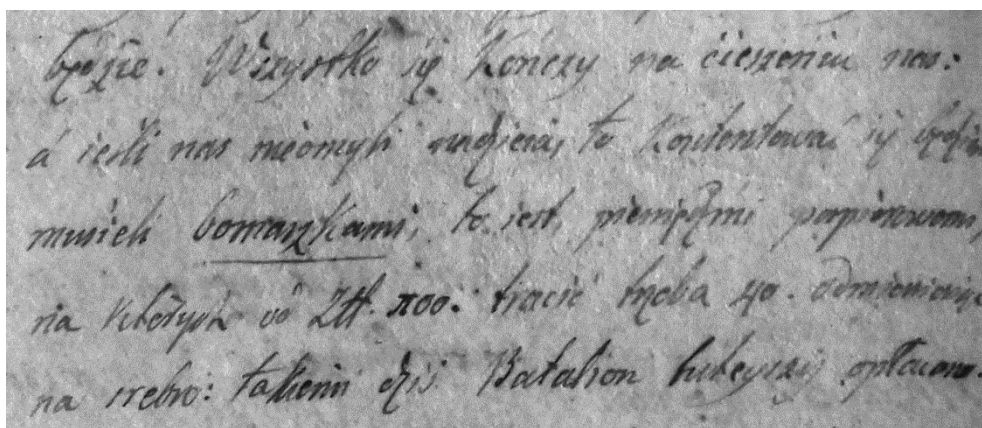 będzie. Wszystko się kończy na cieszeniu nas:
á ieśli nas nieomyli nadzieia, to kontentować się będziem
musieli bomaszkami, to iest, pieniędzmi papierowemi,
na których od Złł. 100: tracić trzeba 40. odmieniaiąc
na srebro: takiemi dziś Batalion tuteyszy opłacono.